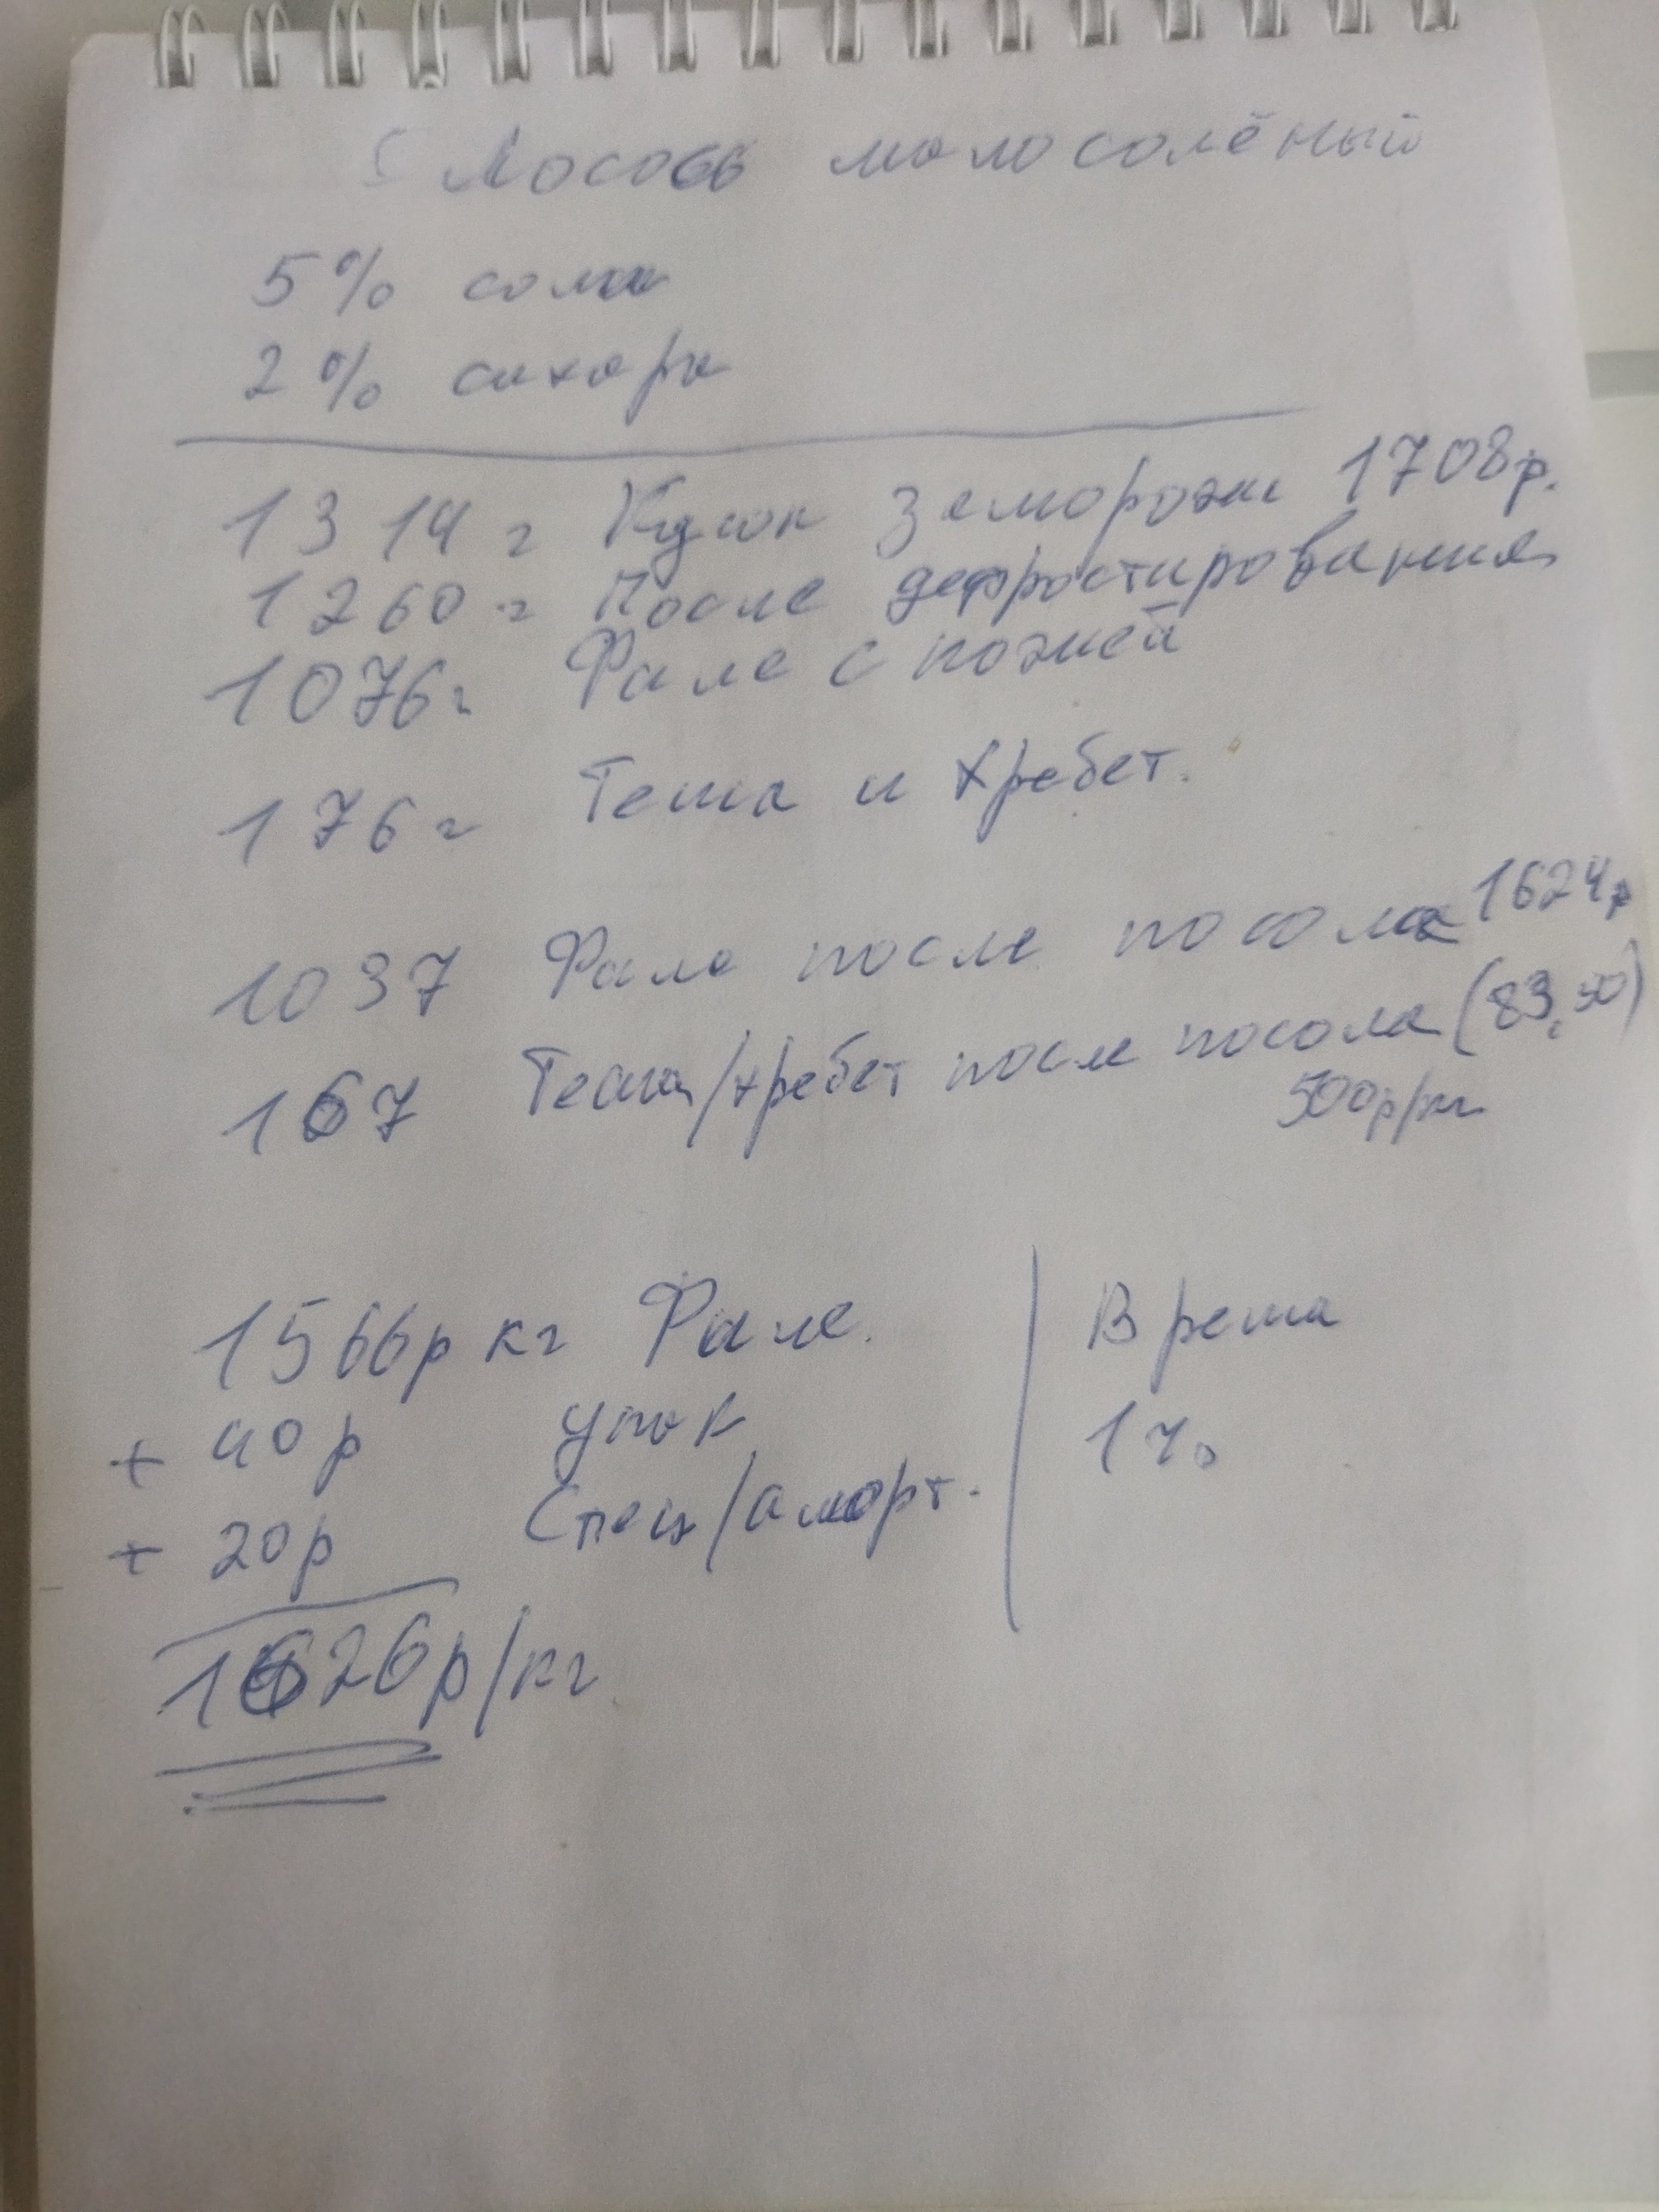 Лосось малосолёный
5% соли
2% сахара
1314 г Кусок заморозки 1708р.
1260 г После дефростирования
1076г Филе с кожей
176г Теша и хребет.
1037 Филе после посола 1624р
167 Теша/хребет после посола (83,50)
500р/кг
1566р кг Филе.
+ 40р упак
+ 20р Спец/аморт.
1626р/кг
Время
1ч.